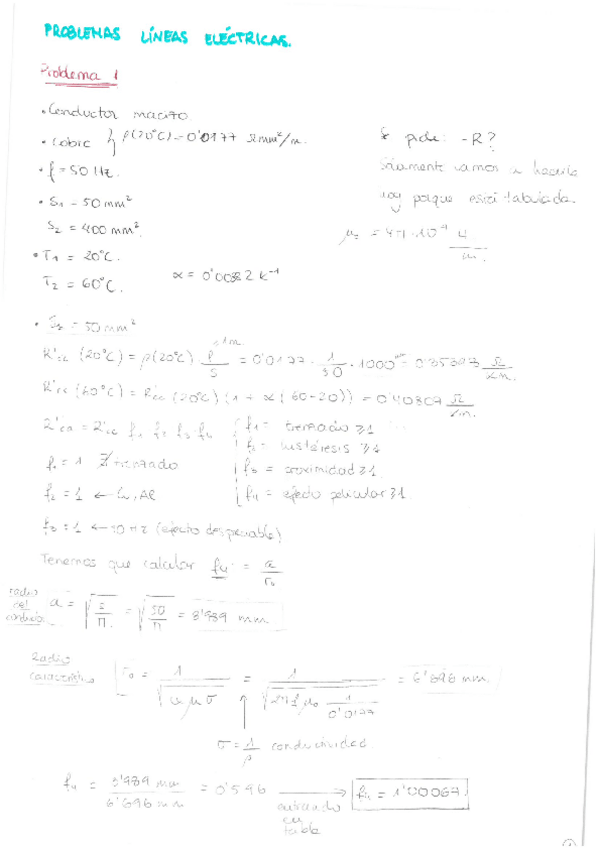 PROBLEMAS LÍNEAS ELÉCTRICAS.
Problema 1
• Conductor macizo
• Cobre } ρ(20°C) = 0'0177 Ωmm²/m.
• f = 50 Hz.
• S1 = 50 mm²
S2 = 400 mm².
• T1 = 20°C.
T2 = 60°C.
α = 0'00382 K⁻¹
Se pide: -R?
Sólamente vamos a hacerlo
hoy porque está tabulada.
• = 50 mm²
(20°C) = ρ(20°C) · = 0'0177 · 1/50 · 1000 = Ω/km.
(60°C) = (20°C) (1 + α (60-20)) = Ω/km.
f1 f2 f3 f4
f1 = trenzado ≥1
f2 = histéresis ≥1
f3 = proximidad ≥1.
f4 = efecto pelicular ≥1.
f1 = 1 trenzado
f2 = 1 ← Cu, Al
f3 = 1 ← (efecto despreciable)
Tenemos que calcular f4 = a/r0
radio del conductor
a = √(S/π) = √(50/π) = 3'989 mm.
Radio característico
r0 = 1/√(ω μ σ) = = 6'696 mm.
σ = 1/ρ conductividad.
f4 = 3'989 mm / 6'696 mm = 0'596 → entrando en tabla f4 = 1'00067